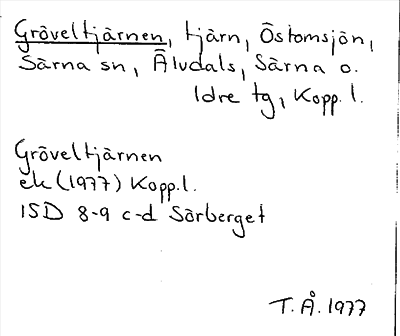 Gröveltjärnen, tjärn, Östomsjön,
Särna sn, Älvdals, Särna o.
Idre tg, Kopp. l.
Gröveltjärnen
ek (1977) Kopp. l.
15D 8-9 c-d Sörberget
T. Å. 1977